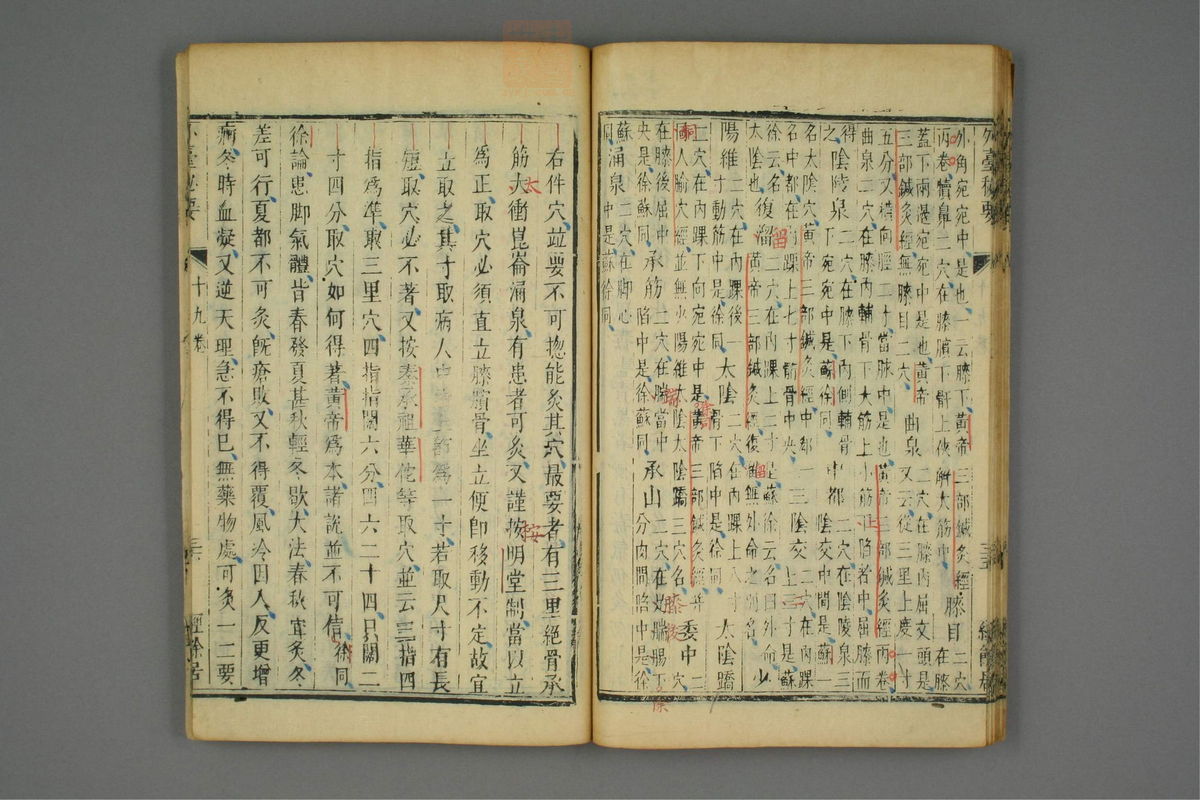 外臺祕要
外角宛宛中是也一云膝下黃帝三部鍼灸經膝目二穴
丙卷犢鼻二穴在膝臏下骭上俠解大筋中在膝
蓋下兩邊宛宛中是也黃帝二穴在膝內屈文頭是
三部鍼灸經無膝目二穴曲泉又云從三里上度一寸
五分又橫向脛二寸當脉中是也黃帝三部鍼灸經丙卷
曲泉二穴在膝內輔骨下大筋上小筋下陷者中屈膝而
得之陰陵泉二穴在膝下內側輔骨下宛宛中是蘇徐同
中都二穴在陰陵泉三陰交中間是蘇
名太陰穴黃帝三部鍼灸經中郄一
名中都在內踝上七寸䯒骨中央三陰交二穴在內踝上三寸是蘇
徐云名太陰也復溜二穴在內踝上二寸是蘇徐云名曰外命
黃帝三部鍼灸經復溜無外命之別名少
陽維二穴在內踝後一寸動筋中是徐同太陰二穴在內踝上八寸骨下陷中是徐同太陰蹻
二穴在內踝下向宛宛中是黃帝三部鍼灸經并
銅人腧穴經並無少陽維太陰太陰蹻三穴名委中二穴
在膝後屈中央是徐蘇同承筋二穴在腨當中陷中是徐蘇同承山二穴在腨腸下分肉間陷中是徐
蘇同涌泉二穴在脚心中是蘇徐同
右件穴並要不可揔能灸其穴最要者有三里絕骨承
筋太衝崑崙涌泉有患者可灸又謹按明堂制當以立
爲正取穴必須直立膝臏骨坐立便卽移動不定故宜
立取之其寸取病人中爲一寸若取尺寸有長
短取穴必不著又按秦承祖華佗等取穴並云三指四
指爲準取三里穴四指指闊六分四六二十四只闊二
寸四分取穴如何得著黃帝爲本諸說並不可信徐同
徐論患脚氣體皆春發夏甚秋輕冬歇大法春秋宜灸冬
差可行夏都不可灸旣瘡敗又不得覆風冷因人反更增
病冬時血凝又逆天理急不得已無藥物處可灸一二要
十九卷
經餘居